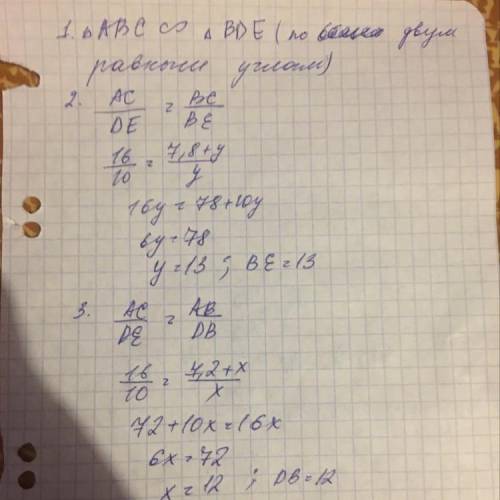 1. △ABC ∽ △BDE (по двум
равным углам)
2. AC/DE = BC/BE
16/10 = 7,8+y/y
16y = 78+10y
6y = 78
y = 13 ; BE = 13
3. AC/DE = AB/DB
16/10 = 7,2+x/x
72+10x = 16x
6x = 72
x = 12 ; DB = 12